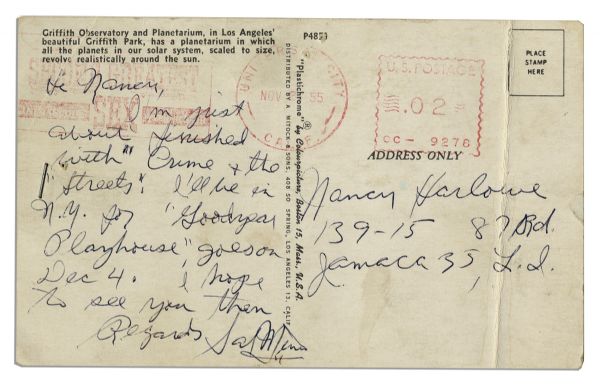 Griffith Observatory and Planetarium, in Los Angeles'
beautiful Griffith Park, has a planetarium in which
all the planets in our solar system, scaled to size,
revolve realistically around the sun.
P4871
PLACE
STAMP
HERE
NOV
55
CITY
CALIF
U.S. POSTAGE
.02
CC- 9276
"Plastichrome"® by Colourpicture, Boston 15, Mass., U.S.A.
DISTRIBUTED BY A. MITOCK & SONS, 408 SO. SPRING, LOS ANGELES 13, CALIF
ADDRESS ONLY
Hi Nancy,
I'm just
about finished
with "Crime & the
"Streets". I'll be in
N.Y. for "Goodyear
Playhouse", goes on
Dec 4. I hope
to see you then
Regards Sal Mineo
Nancy Harlowe
139-15 87 Rd.
Jamaca 35, L.I.